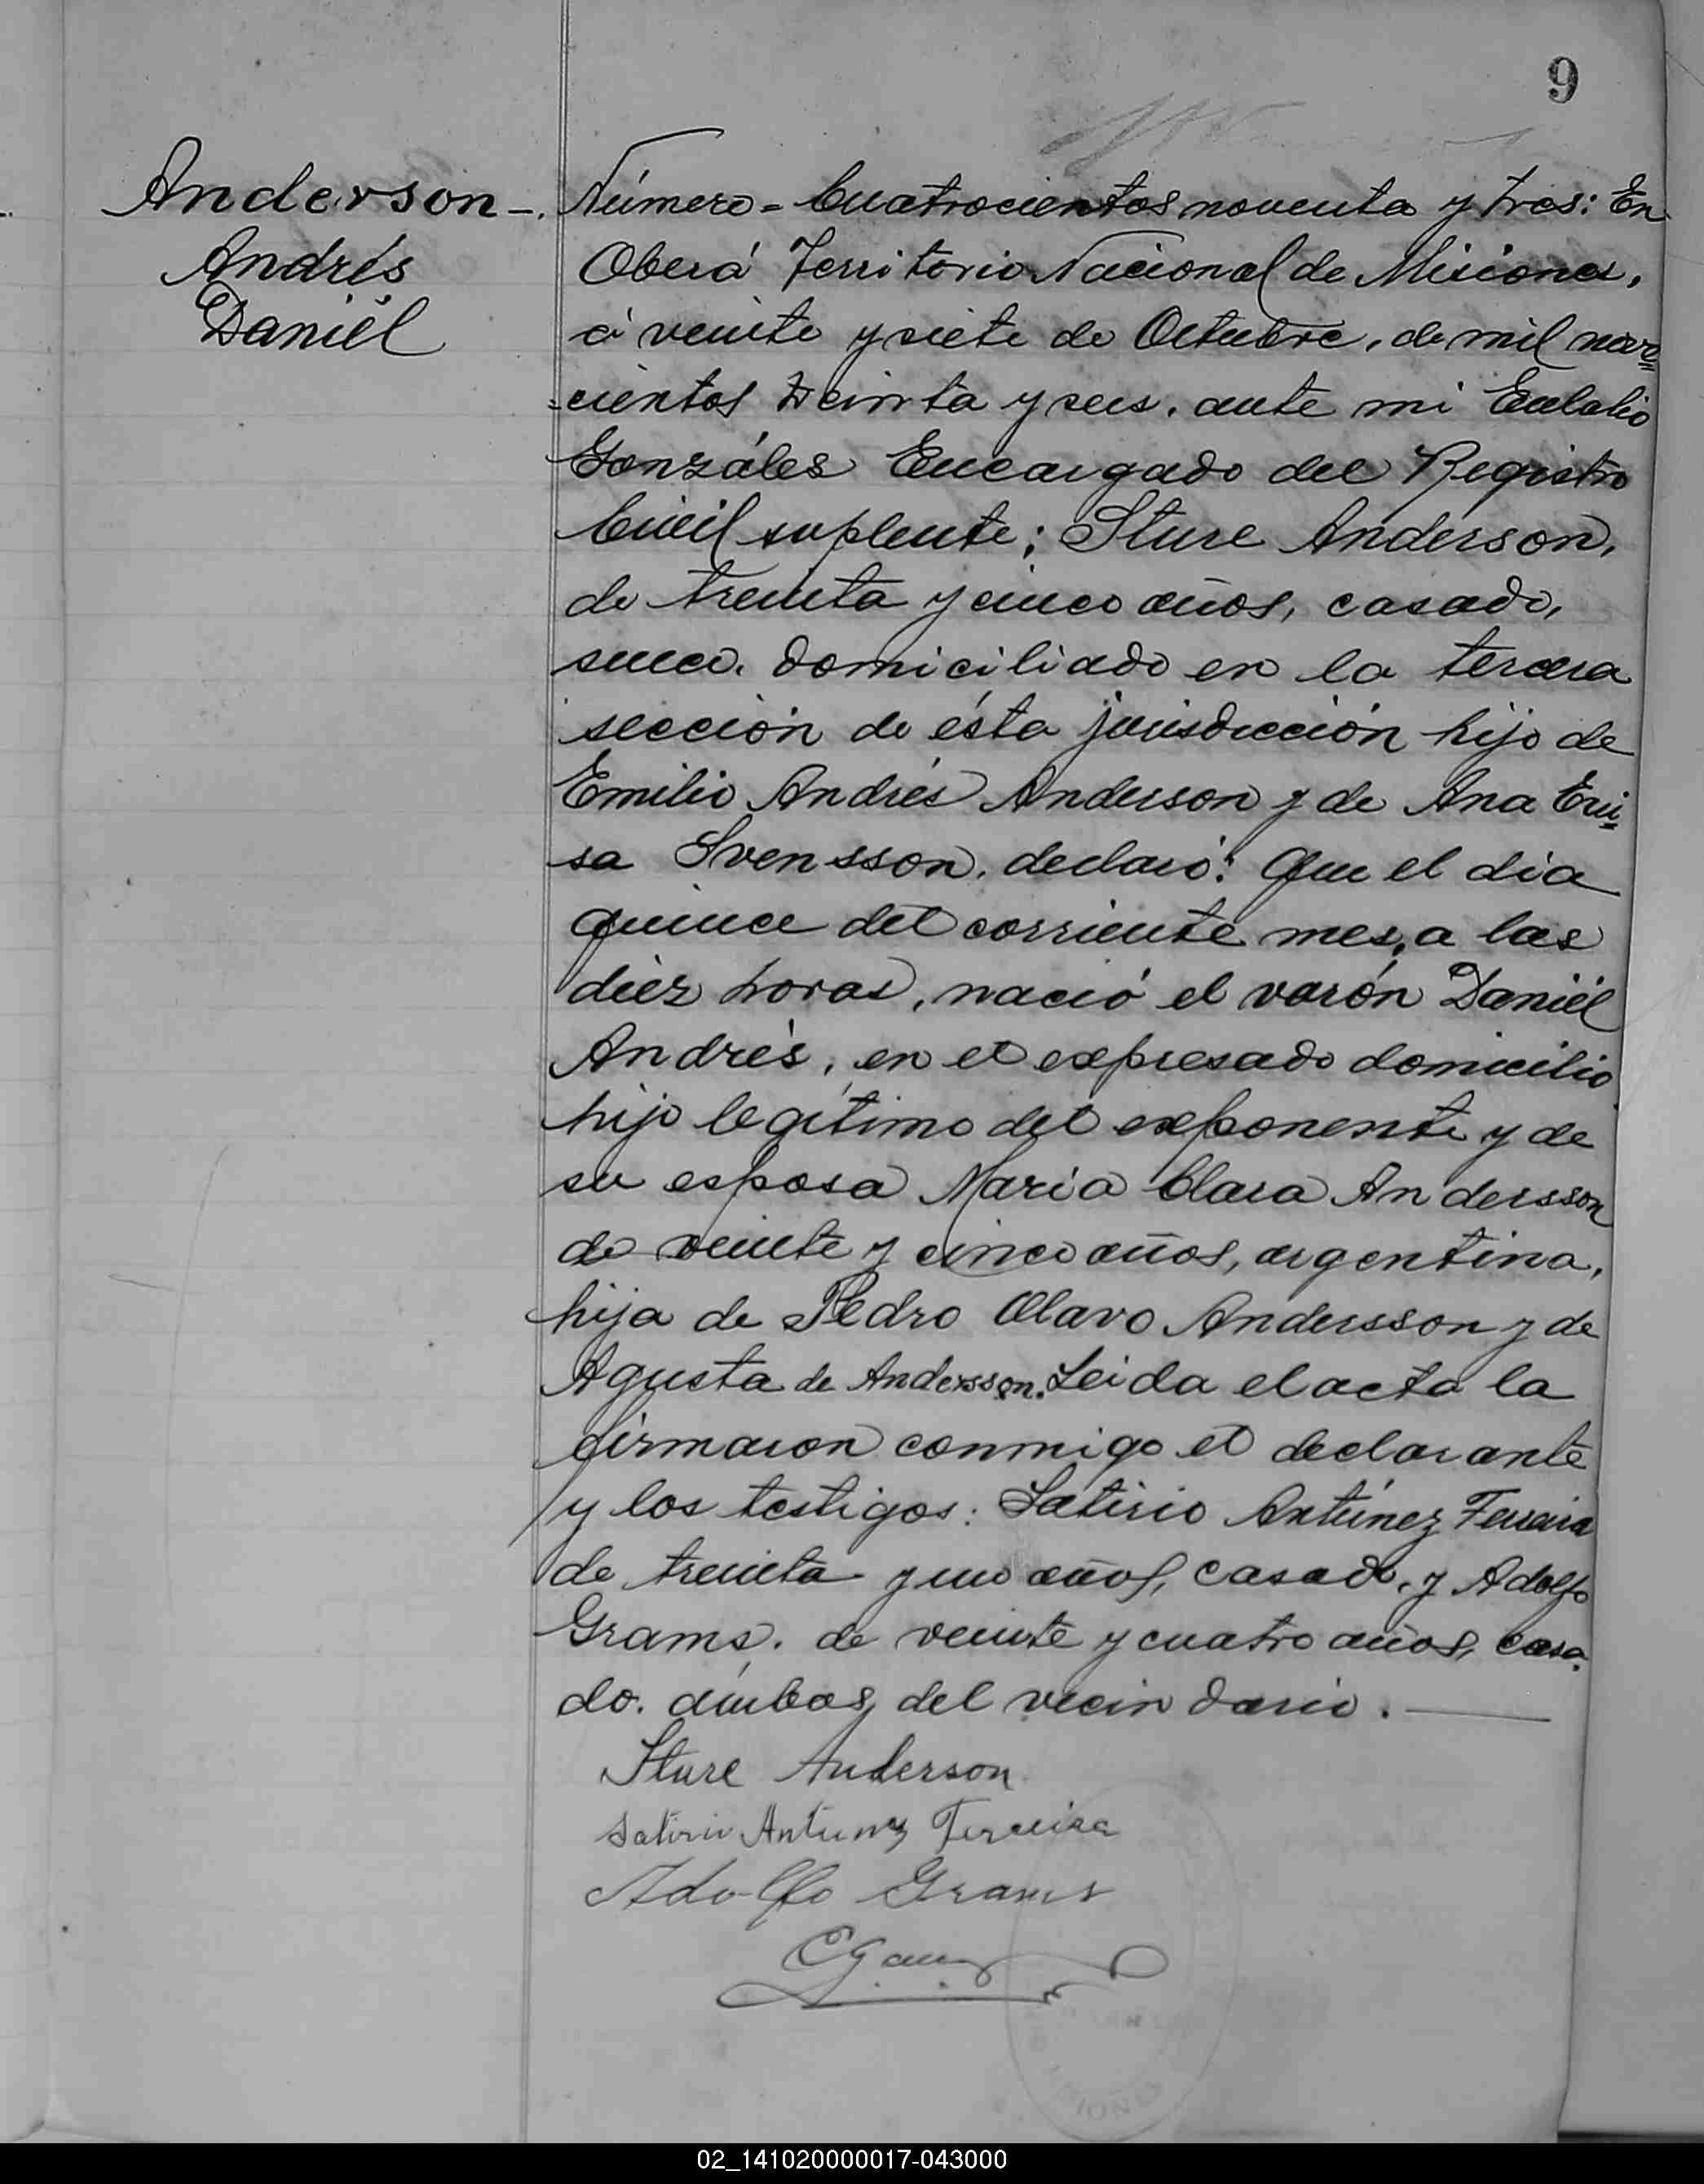 9
Anderson-.
Andrés
Daniél
Número = Cuatrocientos noventa y tres: En
Oberá Territorio Nacional de Misiones,
á veinte y siete de Octubre, de mil nove=
=cientos treinta y seis. ante mi Eulalio
Gonzáles Encargado del Registro
Civil suplente; Sture Anderson,
de treinta y cinco años, casado,
sueco. domiciliado en la tercera
sección de ésta jurisdicción hijo de
Emilio Andrés Anderson y de Ana
sa Svensson. declaró: Que el dia
quince del corriente mes, a las
diéz horas, nació el varón Daniél
Andrés, en el expresado domicilio
hijo legítimo del exponente y de
su esposa Maria Clara Andersson
de veinte y cinco años, argentina,
hija de Pedro Olavo Andersson y de
Agusta de Andersson. Leida el acta la
firmaron conmigo el declarante
y los testigos: Satirio Antúnez Ferreira
de treinta y uno años, casado, y Adolfo
Grams. de veinte y cuatro años, casa-
do. ámbos del vecindario.
Sture Anderson
Satirio Antunez Ferreira
Adolfo Grams
02_141020000017-043000